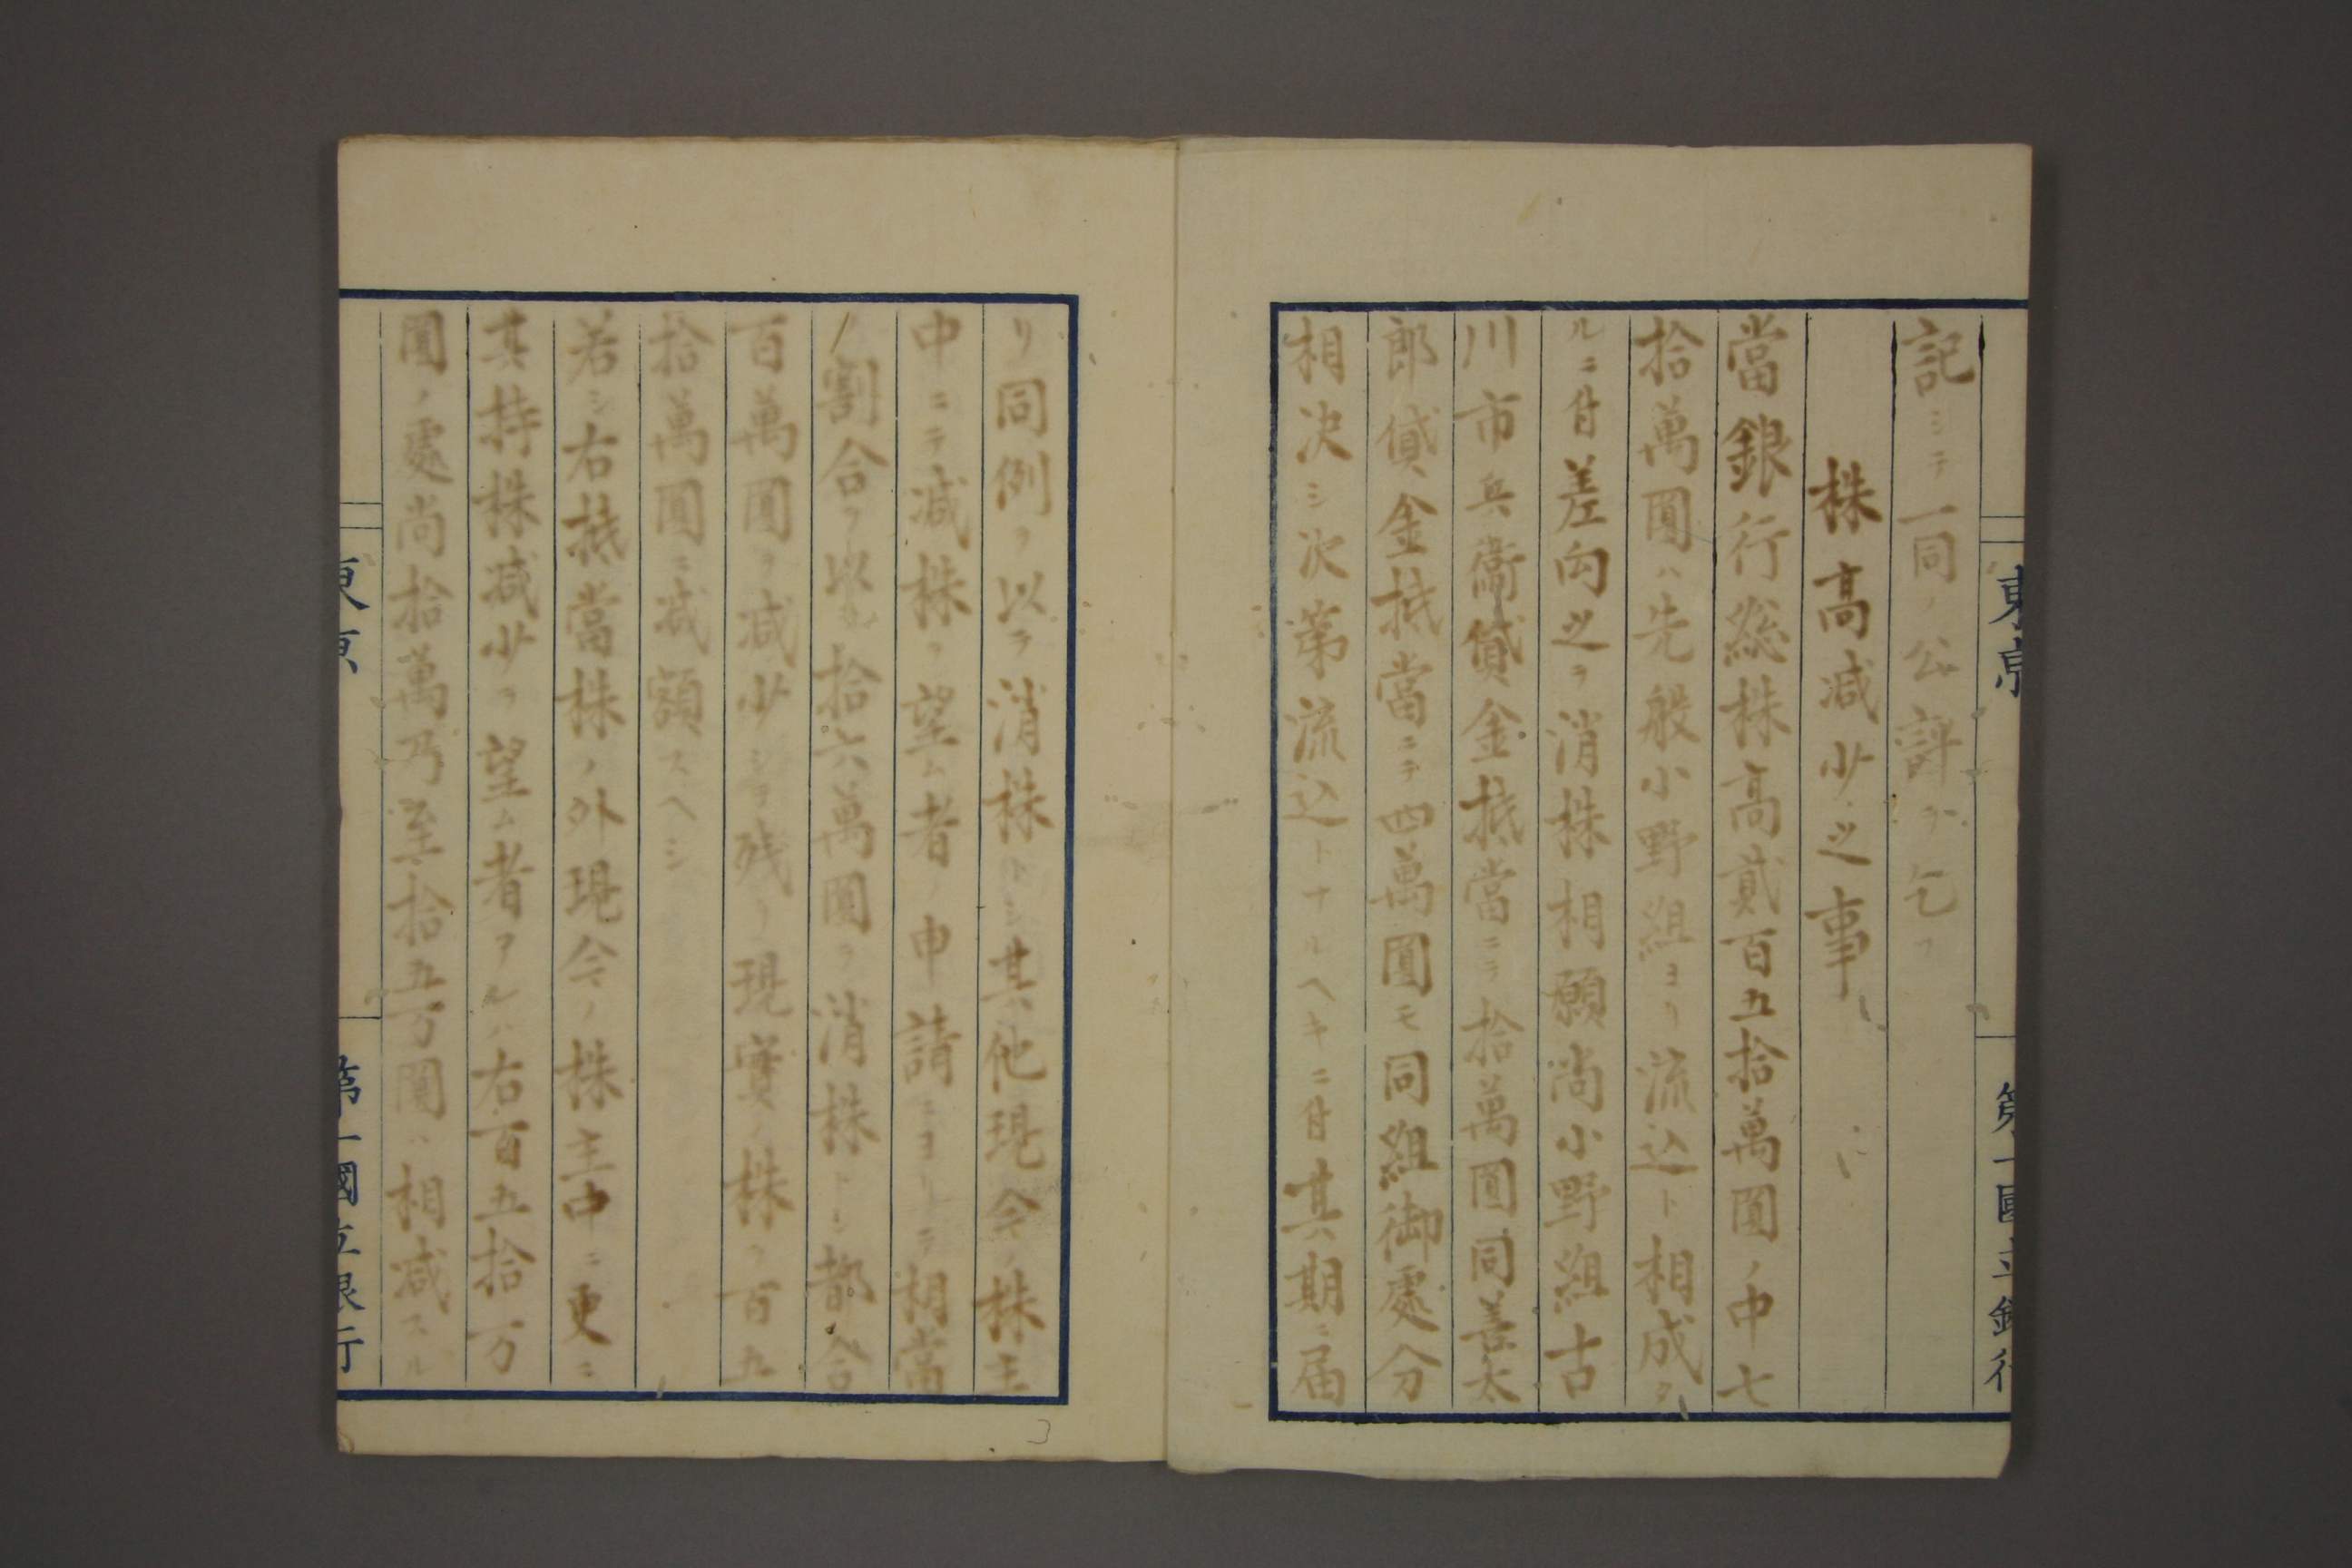 記シテ一同ノ公評ヲ乞フ
株高減少之事
當銀行総株高貳百五拾萬圓ノ中七
拾萬圓ハ先般小野組ヨリ流込ト相成タ
ルニ付差向之ヲ消株相願尚小野組古
川市兵衞貸金抵當ニテ拾萬圓同善太
郎貸金抵當ニテ四萬圓モ同組御處分
相决シ次第流込トナルヘキニ付其期ニ届
リ同例ヲ以テ消株トシ其他現今ノ株主
中ニテ減株ヲ望ム者ノ申請ニヨリテ相當
ノ割合ヲ以テ拾六萬圓ヲ消株トシ都合
百萬圓ヲ減少シテ残リ現實ノ株ヲ百五
拾萬圓ニ減額スヘシ
若シ右抵當株ノ外現今ノ株主中ニ更ニ
其持株減少ヲ望ム者アルハ右百五拾万
圓ノ處尚拾萬乃至拾五万圓ハ相減スル
東京
第一國立銀行
東京
第一國立銀行